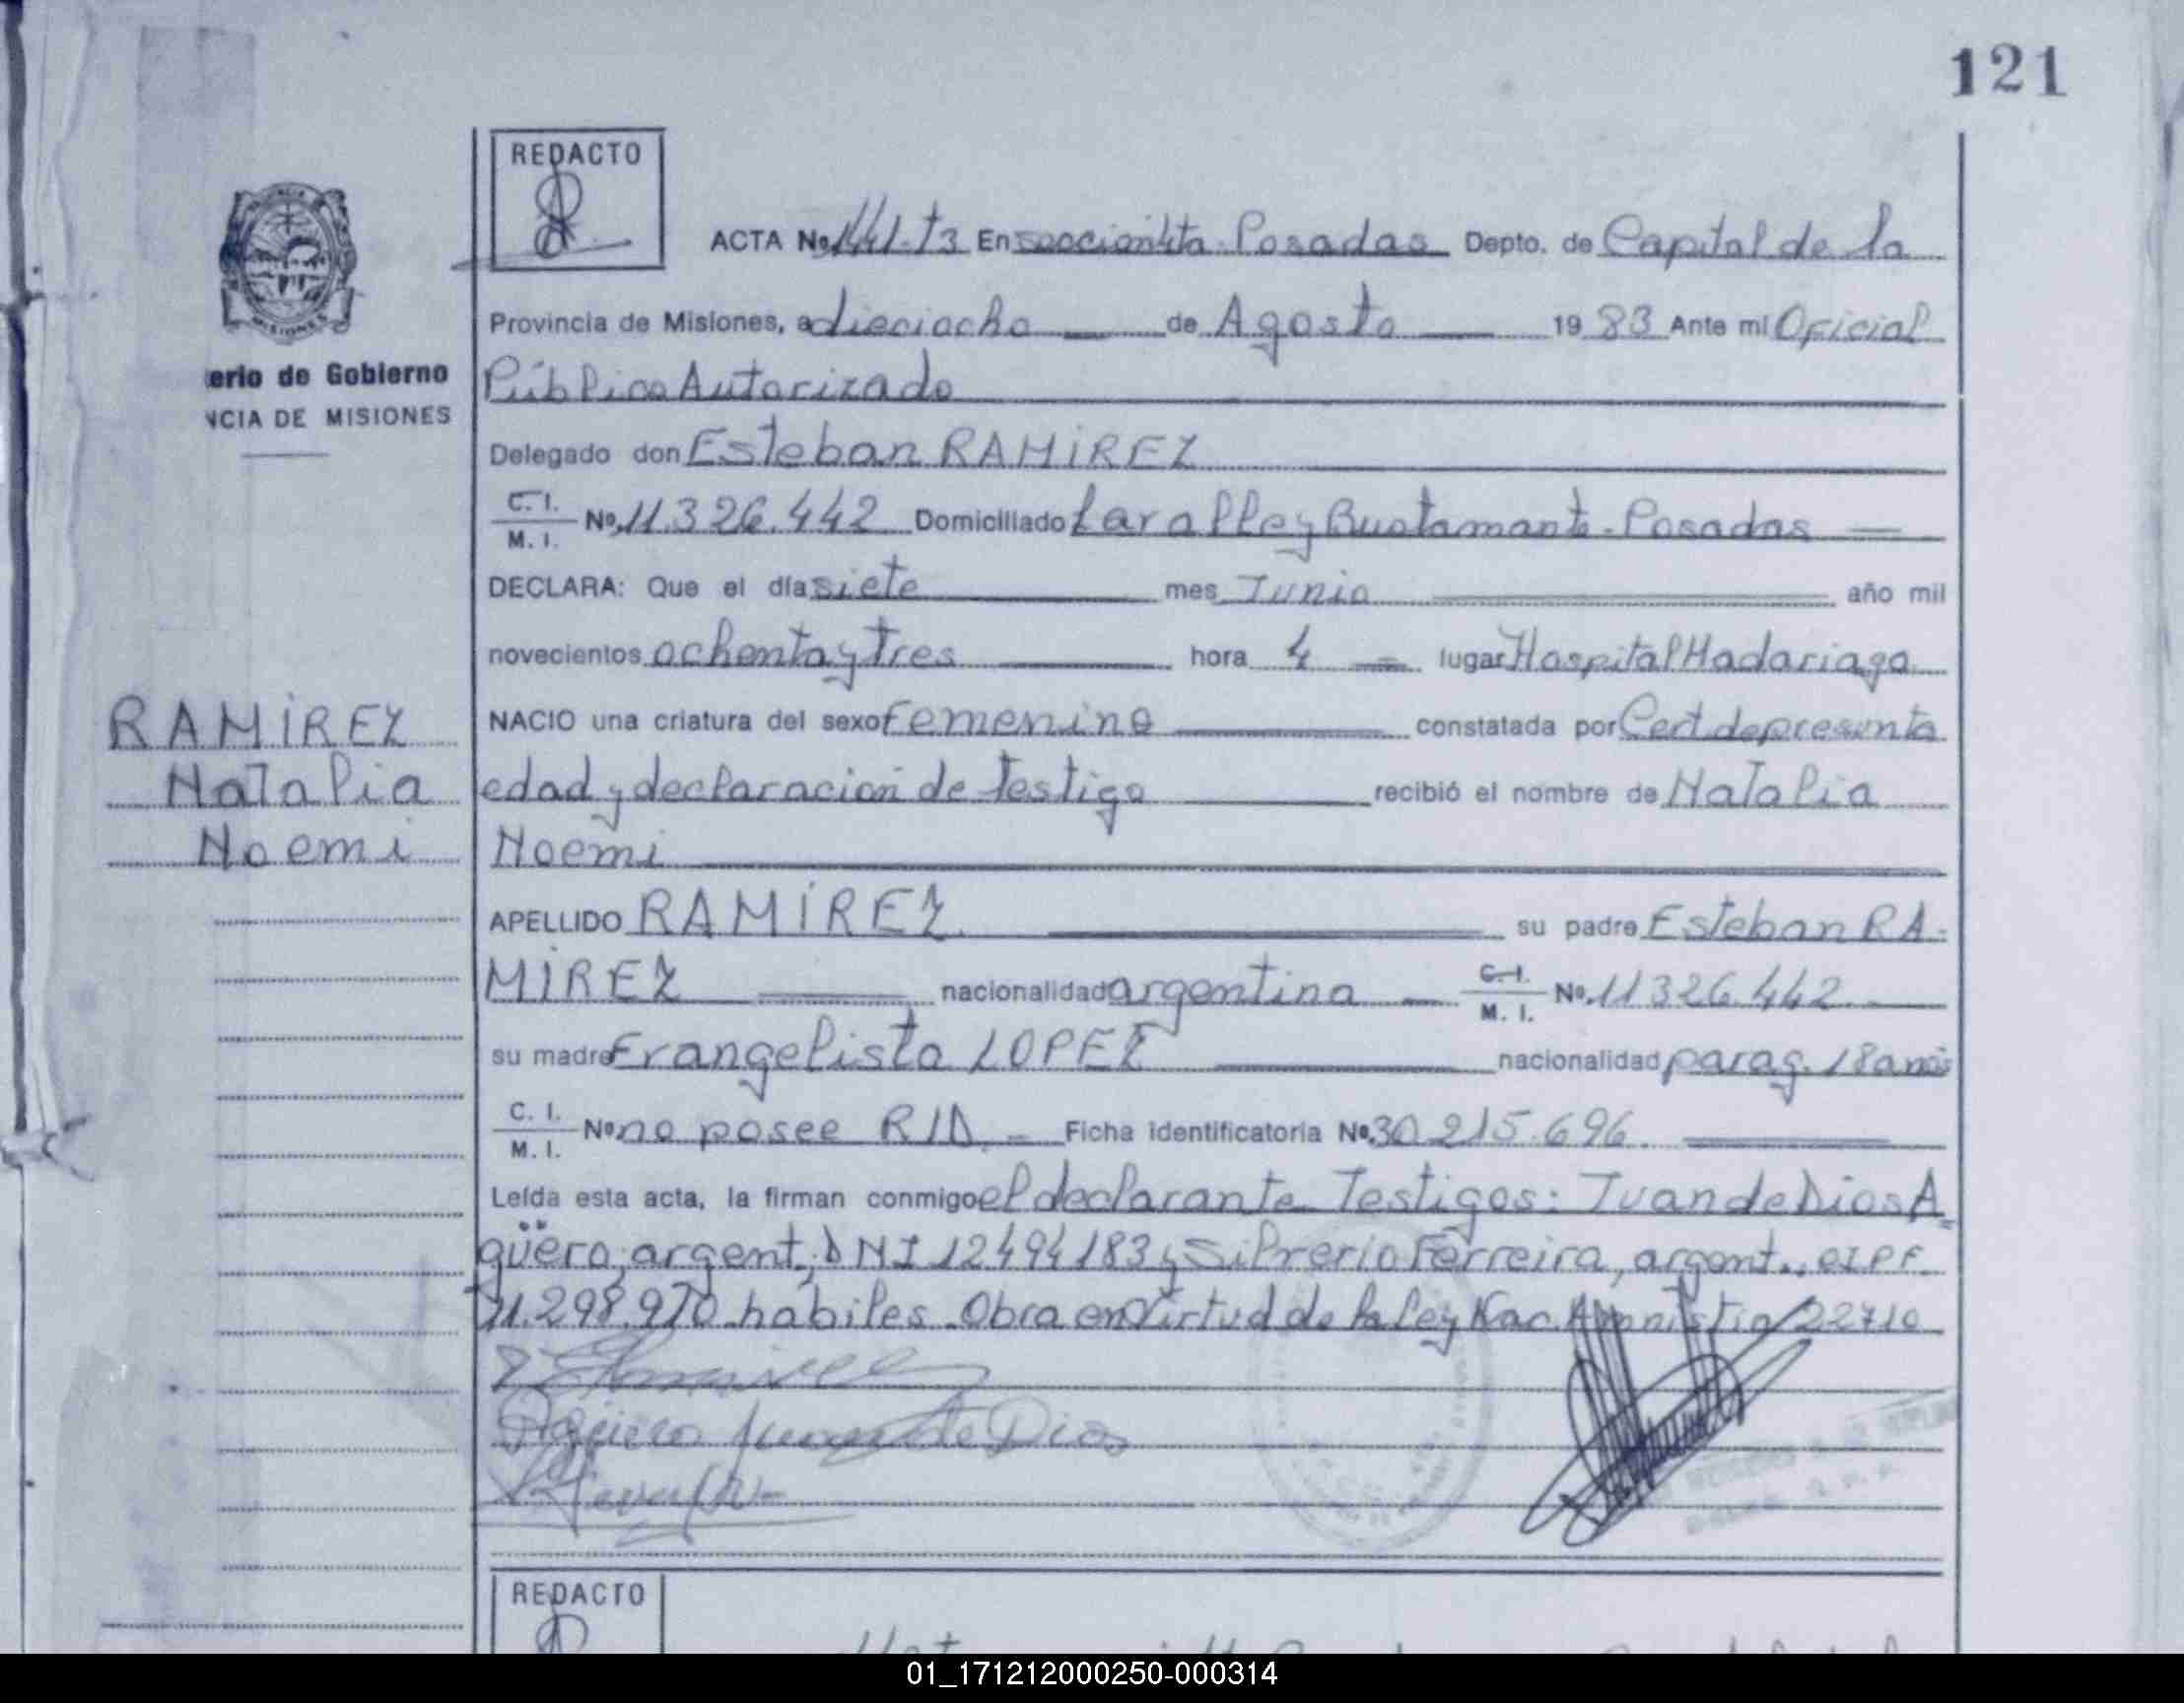 121
REDACTO
ACTA No 1441-T3 En sección 4ta. Posadas Depto. de Capital de la
Provincia de Misiones, a dieciocho de Agosto 1983 Ante mi Oficial
erio de Gobierno
Público Autorizado
NCIA DE MISIONES
Delegado don Esteban RAMÍREZ
C. I. M. I. No. 11.326.442 Domiciliado Laralle y Bustamante - Posadas
DECLARA: Que el día siete mes Junio año mil
novecientos ochenta y tres hora 4 lugar Hospital Madariaga
RAMÍREZ
NACIO una criatura del sexo femenino constatada por Cert. de presunta
Natalia
edad y declaración de testigo recibió el nombre de Natalia
Noemi
Noemi
APELLIDO RAMÍREZ su padre Esteban RA-
MÍREZ nacionalidad argentina C. I. M. I. No. 11326.442
su madre Evangelista LOPEZ nacionalidad parag. 18 años
C. I. M. I. No no posee R/D. Ficha identificatoria No. 30.215.696
Leída esta acta, la firman conmigo el declarante Testigos: Juan de Dios A
güero, argent., DNI 12494183 y Silverio Ferreira, argent., CIPF
11.298.970 habiles. Obra en Virtud de la ley Nac. Amnistia 22710
Agüero Juan de Dios
REDACTO
01_171212000250-000314